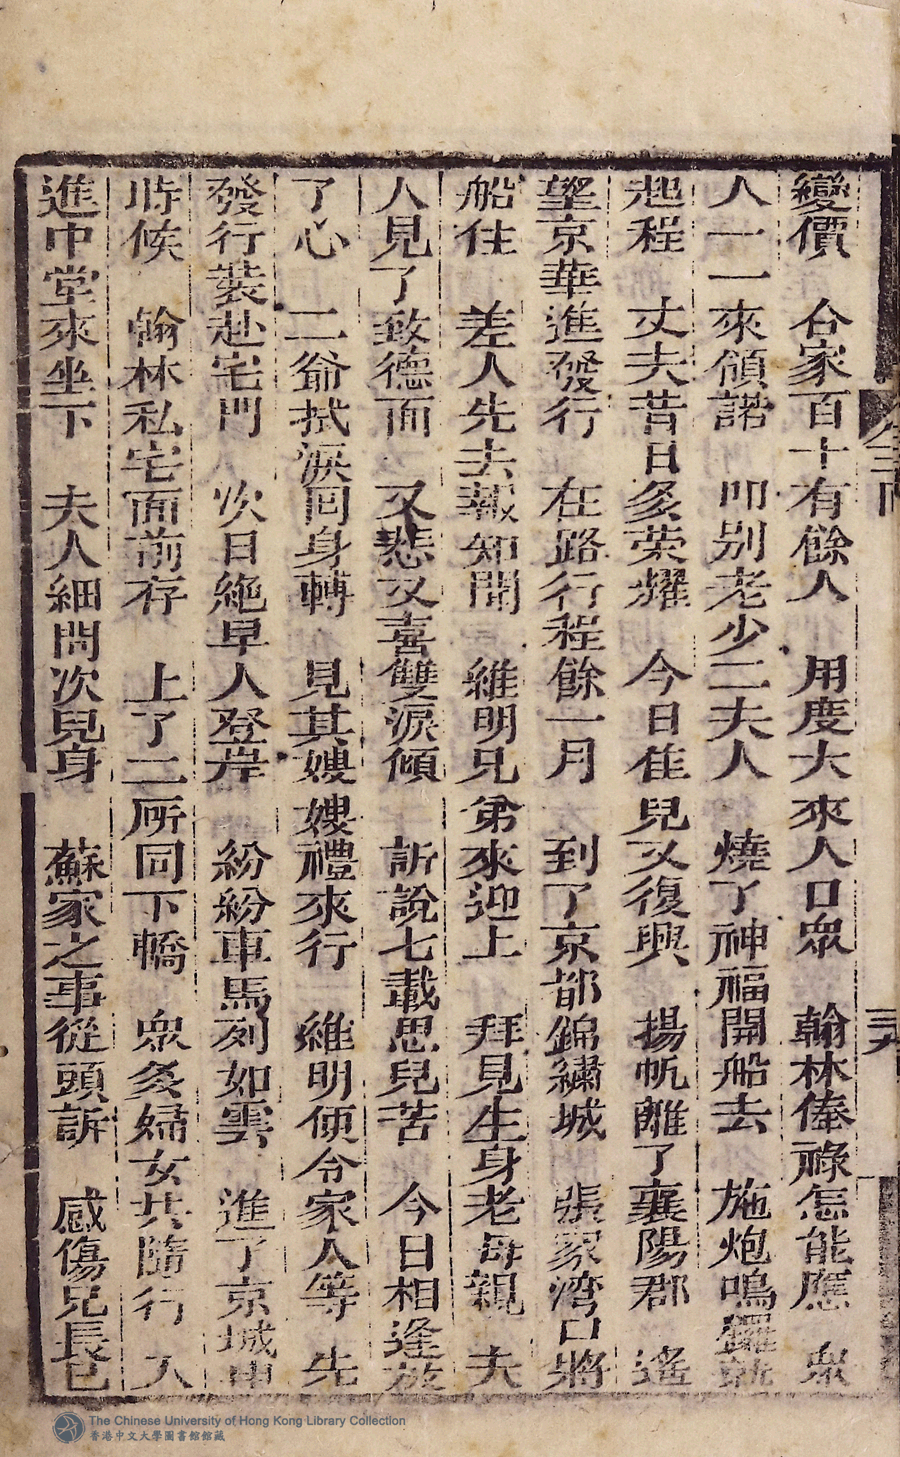 變價　合家百十有餘人　用度大來人口眾　翰林俸祿怎能應　眾
人一一來領諾　叩别老少二夫人　燒了神福開船去　施炮鳴鑼就
起程　丈夫昔日多荣耀　今日佳兒又復興　揚帆離了襄陽郡　遙
望京華進發行　在路行程餘一月　到了京都錦繡城　張家湾口將
船住　差人先去報知聞　維明兄弟來迎上　拜見生身老母親　夫
人見了致德面　又悲又喜雙淚傾　訴說七載思兒苦　今日相逢放
了心　二爺拭淚囘身轉　見其嫂嫂禮來行　維明便令家人等　先
發行裝赴宅門　次日絶早人登岸　紛紛車馬列如雲　進了京城
時候　翰林私宅面前存　上了二㕔同下轎　眾多婦女共隨行　入
進中堂來坐下　夫人細問次兒身　蘇家之事從頭訴　感傷兄長已
三九
The Chinese University of Hong Kong Library Collection
香港中文大學圖書館館藏